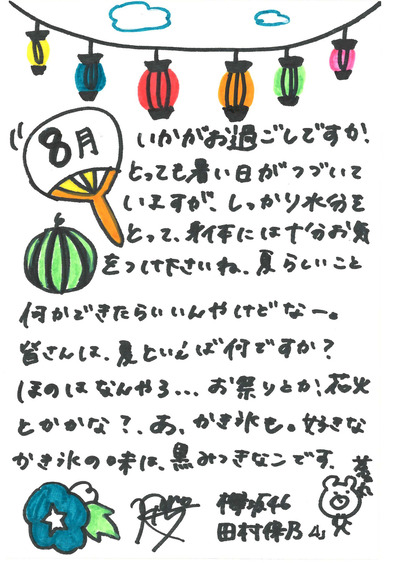 8月
いかがお過ごしですか?
とっても暑い日がつづいて
いますが、しっかり水分を
とって、身体には十分お気
をつけ下さいね。夏らしいこと
何かできたらいいんやけどなー。
皆さんは、夏といえば何ですか?
ほのはなんやろ...お祭りとか、花火
とかかな?、あ、かき氷も。好きな
かき氷の味は、黒みつきなこです。
欅坂46
田村保乃